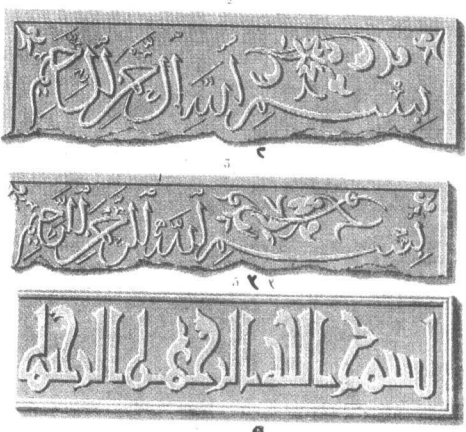 بسم الله الرحمن الرحيم
٢
بسم الله الرحمن الرحيم
بسم الله الرحمن الرحيم